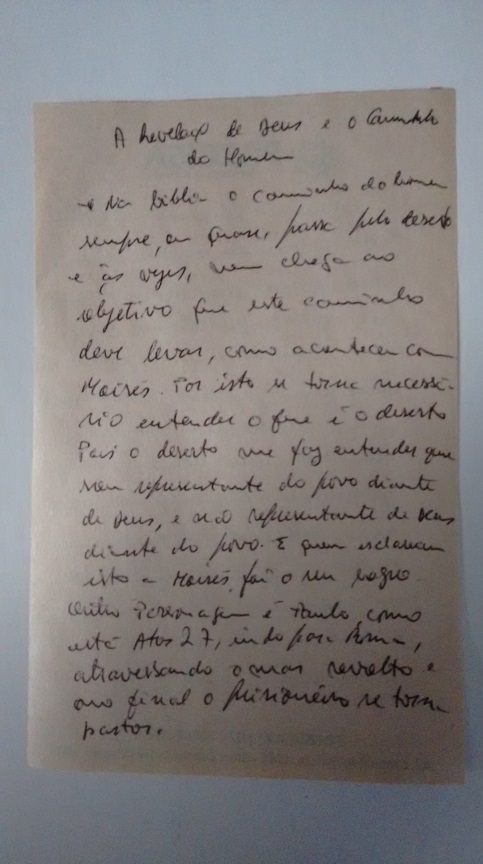 A Revelação de Deus e o Caminho
do Homem
→ Na Bíblia o caminho do homem
sempre, ou quase, passa pelo deserto
e às vezes, nem chega ao
objetivo que este caminho
deve levar, como aconteceu com
Moisés. Por isto se torna necessá-
rio entender o que é o deserto
Pois o deserto me faz entender que
sou representante do povo diante
de Deus, e não representante de Deus
diante do povo. E quem esclareceu
isto a Moisés, foi o seu sogro.
Outro Personagem é Paulo, como
está Atos 27, indo para Roma,
atravessando o mar revolto e
ao final o prisioneiro se torna
pastor.